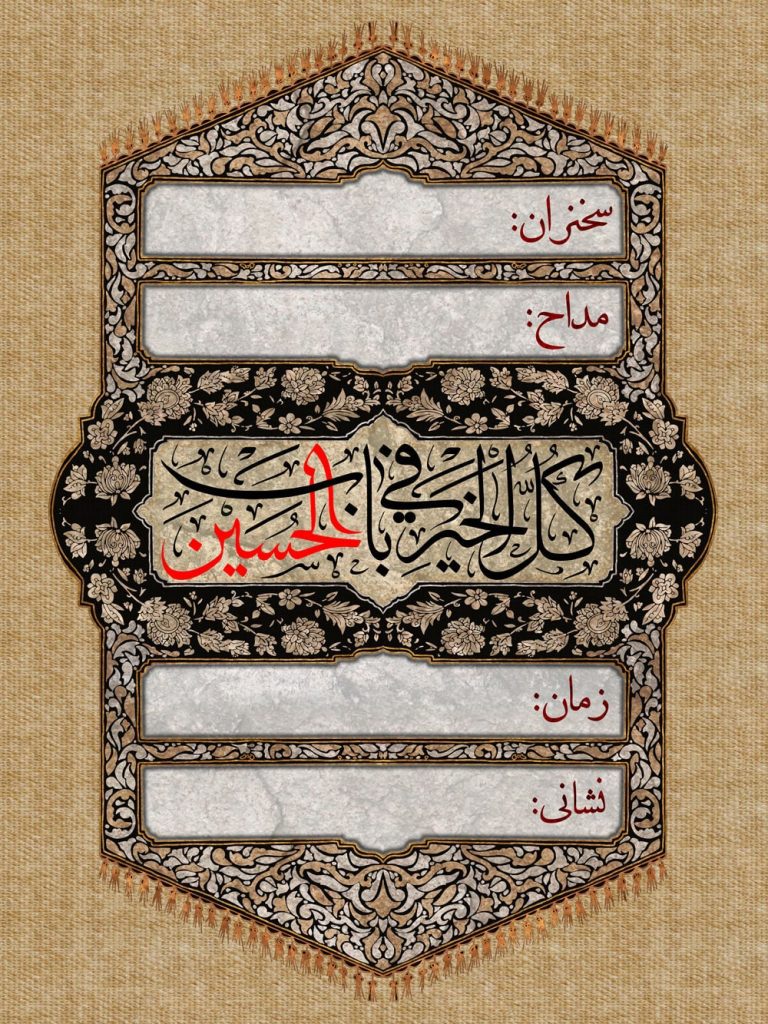 سخنران:
مداح:
كُلُّ الخَير في باب الحُسَین
زمان:
نشانی: